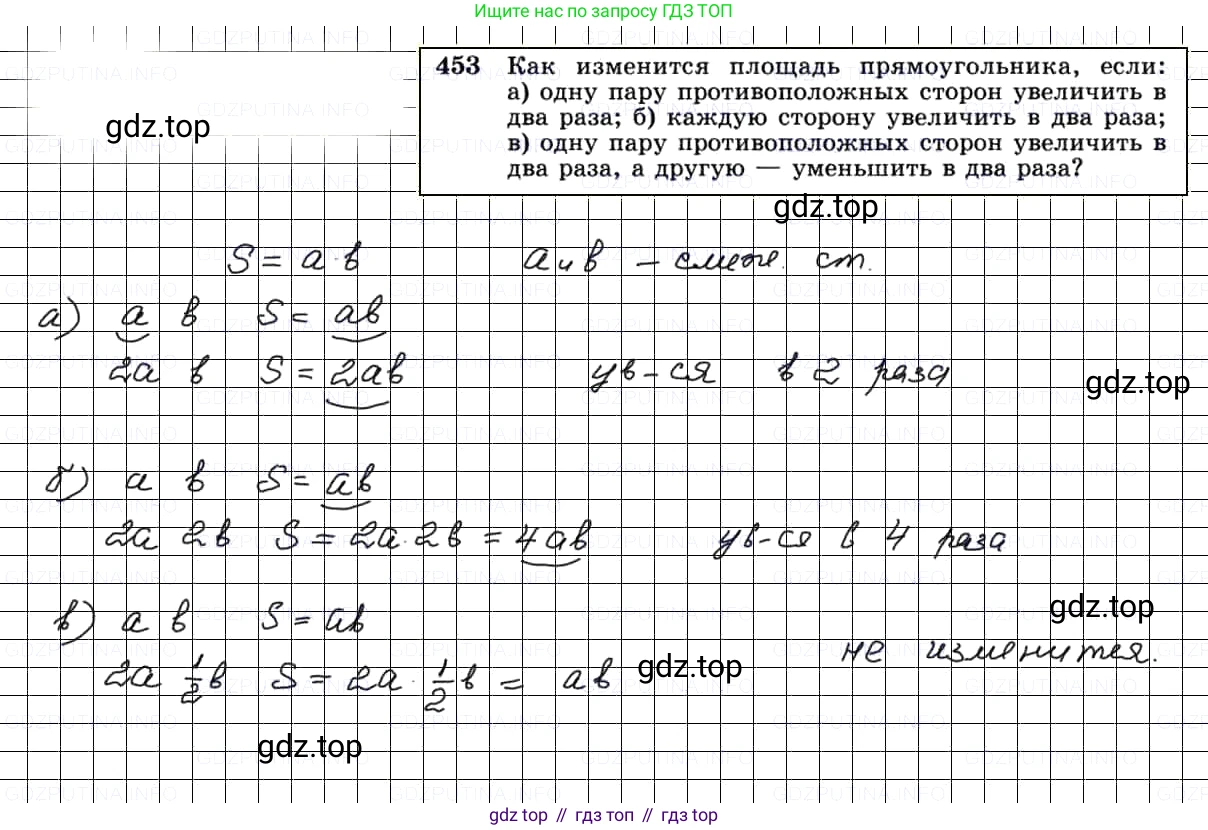 Ищите нас по запросу ГДЗ ТОП
453 Как изменится площадь прямоугольника, если:
а) одну пару противоположных сторон увеличить в
два раза; б) каждую сторону увеличить в два раза;
в) одну пару противоположных сторон увеличить в
два раза, а другую — уменьшить в два раза?
gdz.top
gdz.top
S = a·b a и b – смежн. ст.
а) a b S = ab
2a b S = 2ab ув-ся в 2 раза
gdz.top
б) a b S = ab
2a 2b S = 2a·2b = 4ab ув-ся в 4 раза
в) a b S = ab
gdz.top
2a 1/2b S = 2a·1/2b = ab не изменится.
gdz.top
gdz.top
gdz top // гдз топ // gdz top